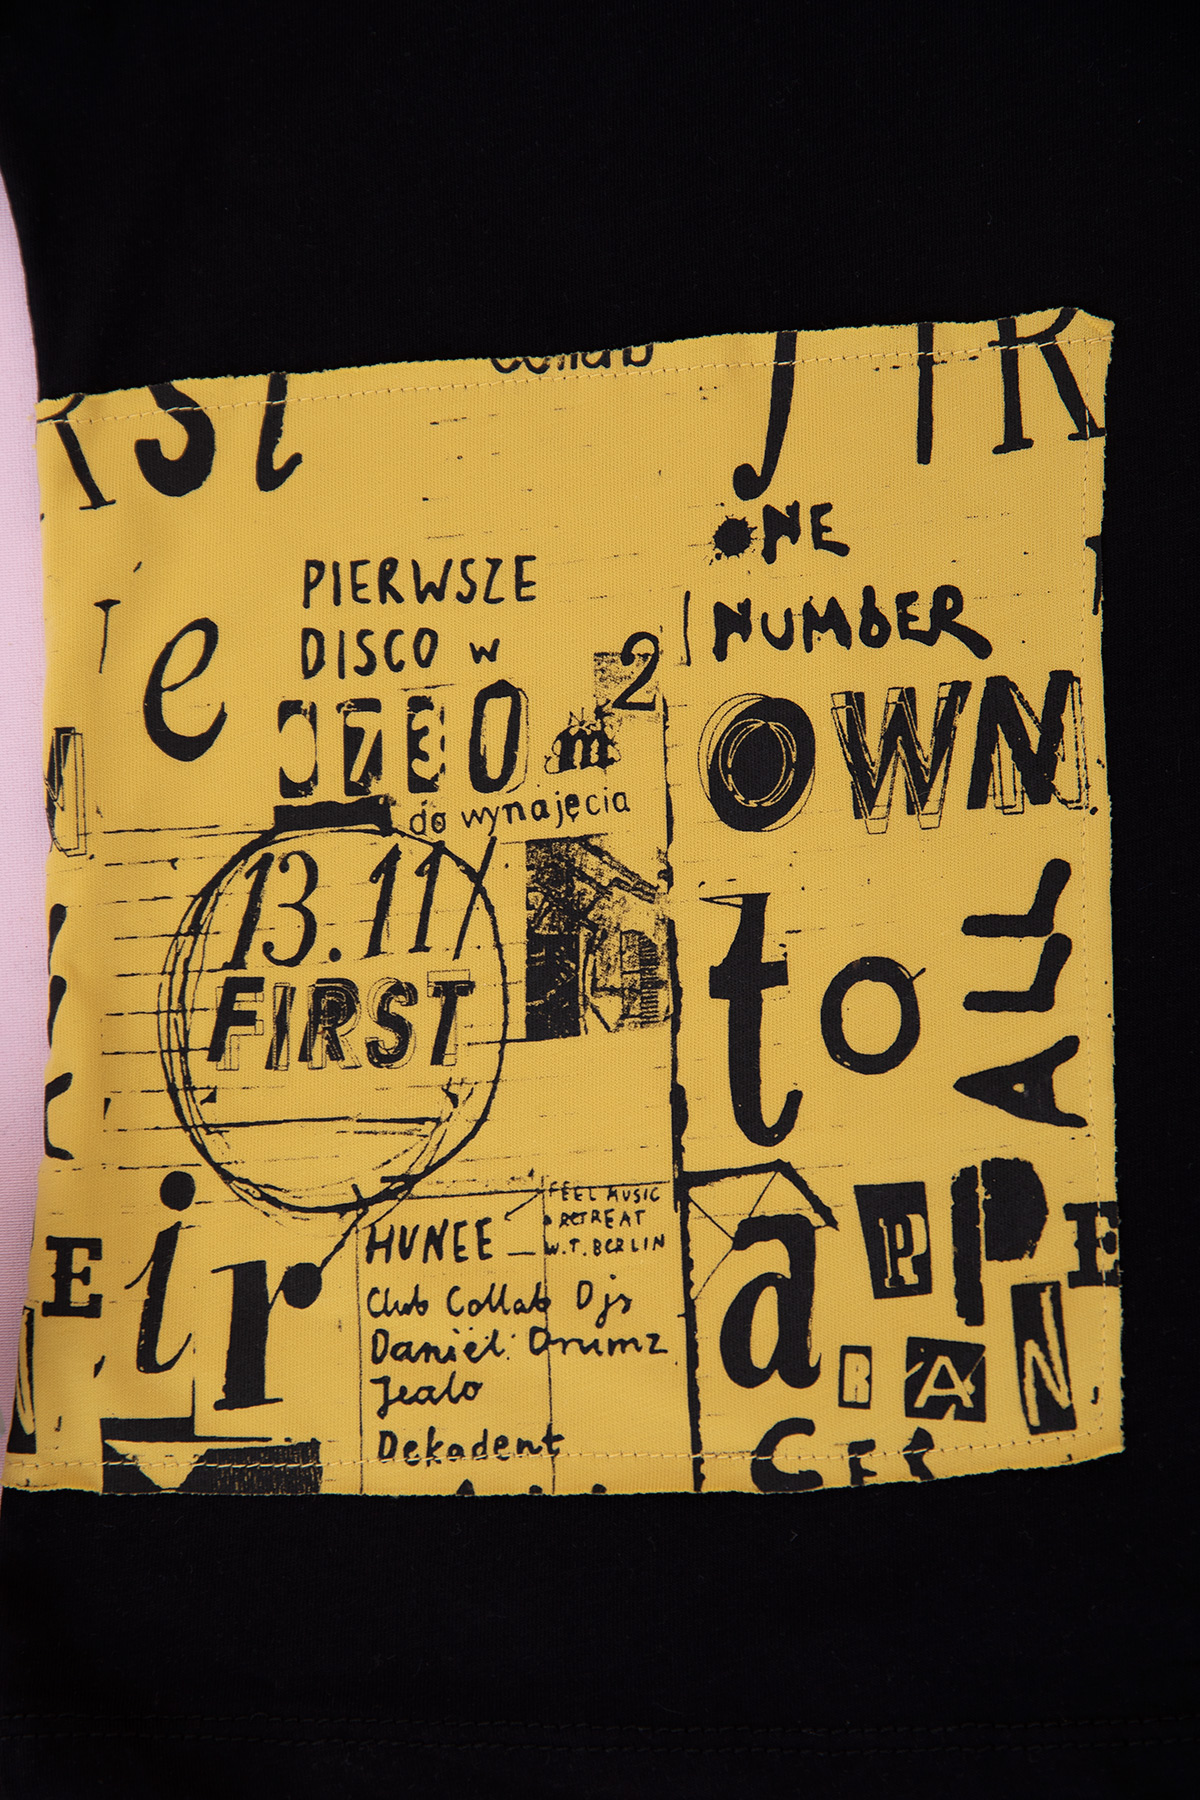 collab
PIERWSZE
DISCO W
0730 m2
do wynajęcia
13.11
FIRST
HUNEE
FEEL MUSIC
RETREAT
W.T. BERLIN
Club Collab Djs
Daniel Drumz
Jealo
Dekadent
e
ir
ONE
NUMBER
OWN
to
ALL
a
PPE
RAN
CES